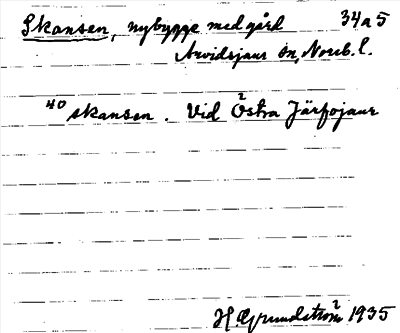 Skansen, nybygge med gård 34a5
Arvidsjaurs sn, Norrb. l.
40 skansen. Vid Östra Järfojaur
H. Grundström 1935